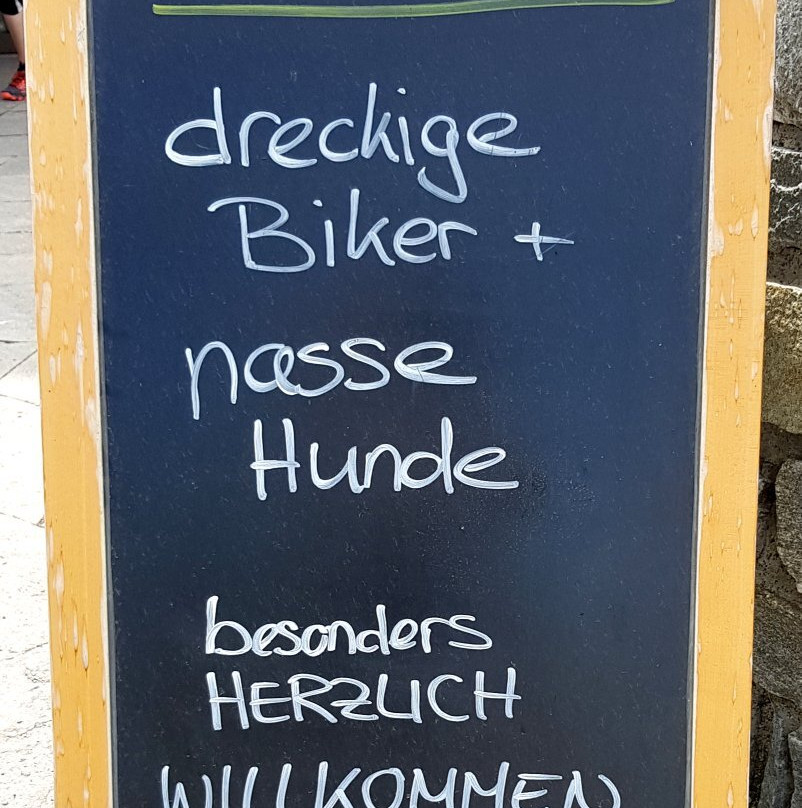 dreckige
Biker +
nasse
Hunde
besonders
HERZLICH
WILLKOMMEN